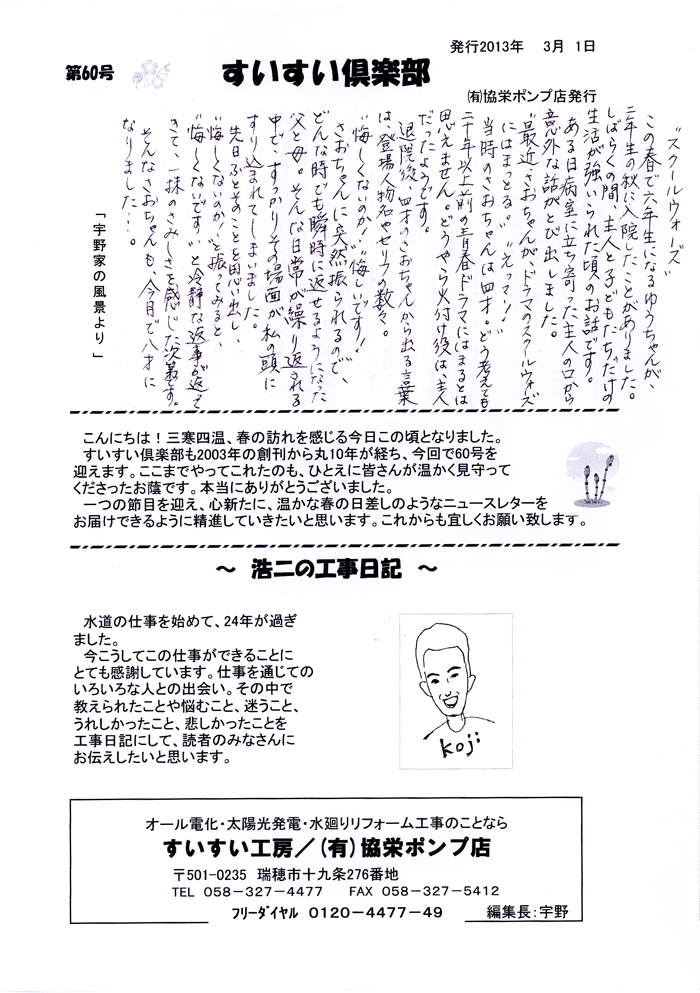 発行2013年　3月 1日
第60号
すいすい倶楽部
㈲協栄ポンプ店発行
"スクールウォーズ"
この春で六年生になるゆうちゃんが、
二年生の秋に入院したことがありました。
しばらくの間、主人と子どもたちだけの
生活が強いられた頃のお話です。
ある日病室に立ち寄った主人の口から
意外な話がとび出しました。
"最近、さおちゃんが、ドラマのスクールウォーズ
にはまっとる。" "えっマジ!"
当時のさおちゃんは四才。どう考えても
二十年以上前の青春ドラマにはまるとは
思えません。どうやら火付け役は、主人
だったようです。
退院後、四才のさおちゃんから出る言葉
は、登場人物名やセリフの数々。
"悔しくないのか!" "悔しいです!"
さおちゃんに突然振られるので、
どんな時でも瞬時に返せるようになった
父と母。そんな日常が繰り返される
中で、すっかりその場面が私の頭に
すり込まれてしまいました。
先日ふとそのことを思い出し、
"悔しくないのか!"と振ってみると、
"悔しくないです"と冷静な返事が返って
きて、一抹のさみしさを感じた次第です。
そんなさおちゃんも、今月で八才に
なりました…。
「宇野家の風景より」
こんにちは！三寒四温、春の訪れを感じる今日この頃となりました。
すいすい倶楽部も2003年の創刊から丸10年が経ち、今回で60号を
迎えます。ここまでやってこれたのも、ひとえに皆さんが温かく見守って
くださったお蔭です。本当にありがとうございました。
一つの節目を迎え、心新たに、温かな春の日差しのようなニュースレターを
お届けできるように精進していきたいと思います。これからも宜しくお願い致します。
～ 浩二の工事日記 ～
水道の仕事を始めて、24年が過ぎ
ました。
今こうしてこの仕事ができることに
とても感謝しています。仕事を通じての
いろいろな人との出会い。その中で
教えられたことや悩むこと、迷うこと、
うれしかったこと、悲しかったことを
工事日記にして、読者のみなさんに
お伝えしたいと思います。
koji
オール電化・太陽光発電・水廻りリフォーム工事のことなら
すいすい工房／(有)協栄ポンプ店
〒501-0235 瑞穂市十九条276番地
TEL 058-327-4477 FAX 058-327-5412
フリーダイヤル 0120-4477-49
編集長：宇野